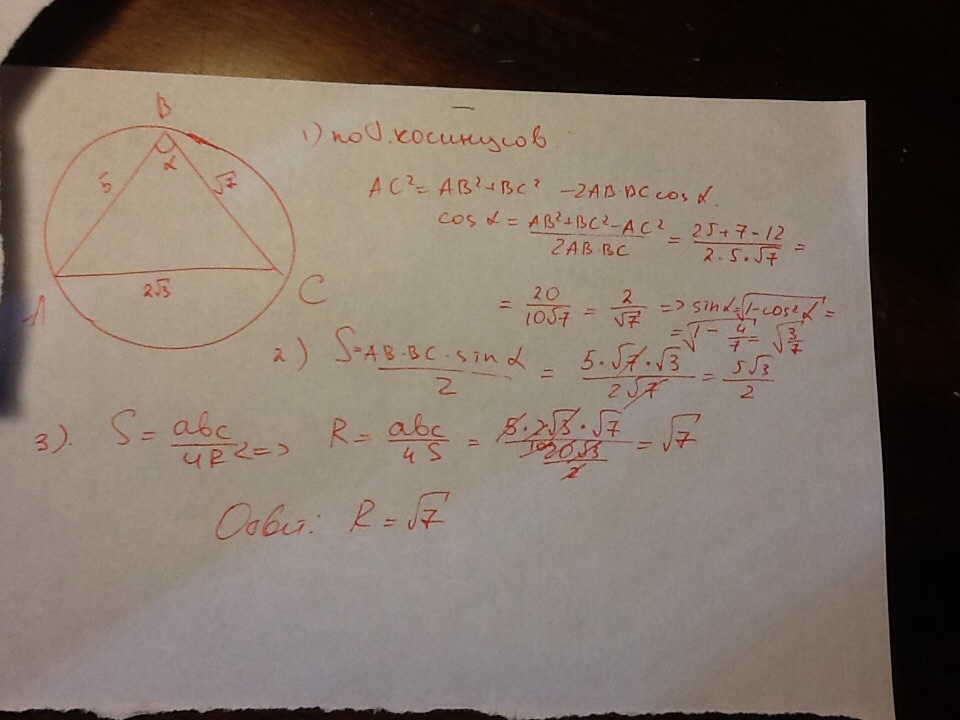 B
5
α
√7
A
2√3
C
1) по т. косинусов
AC² = AB² + BC² - 2AB·BC cos α.
cos α = (AB² + BC² - AC²)/(2AB·BC) = (25 + 7 - 12)/(2·5·√7) =
= 20/(10√7) = 2/√7 => sin α = √(1 - cos² α) =
= √(1 - 4/7) = √(3/7)
2) S = (AB·BC·sin α)/2 = (5·√7·√3)/(2√7) = 5√3/2
3). S = abc/4R => R = abc/4S = (5·2√3·√7)/(20√3/2) = √7
Ответ: R = √7